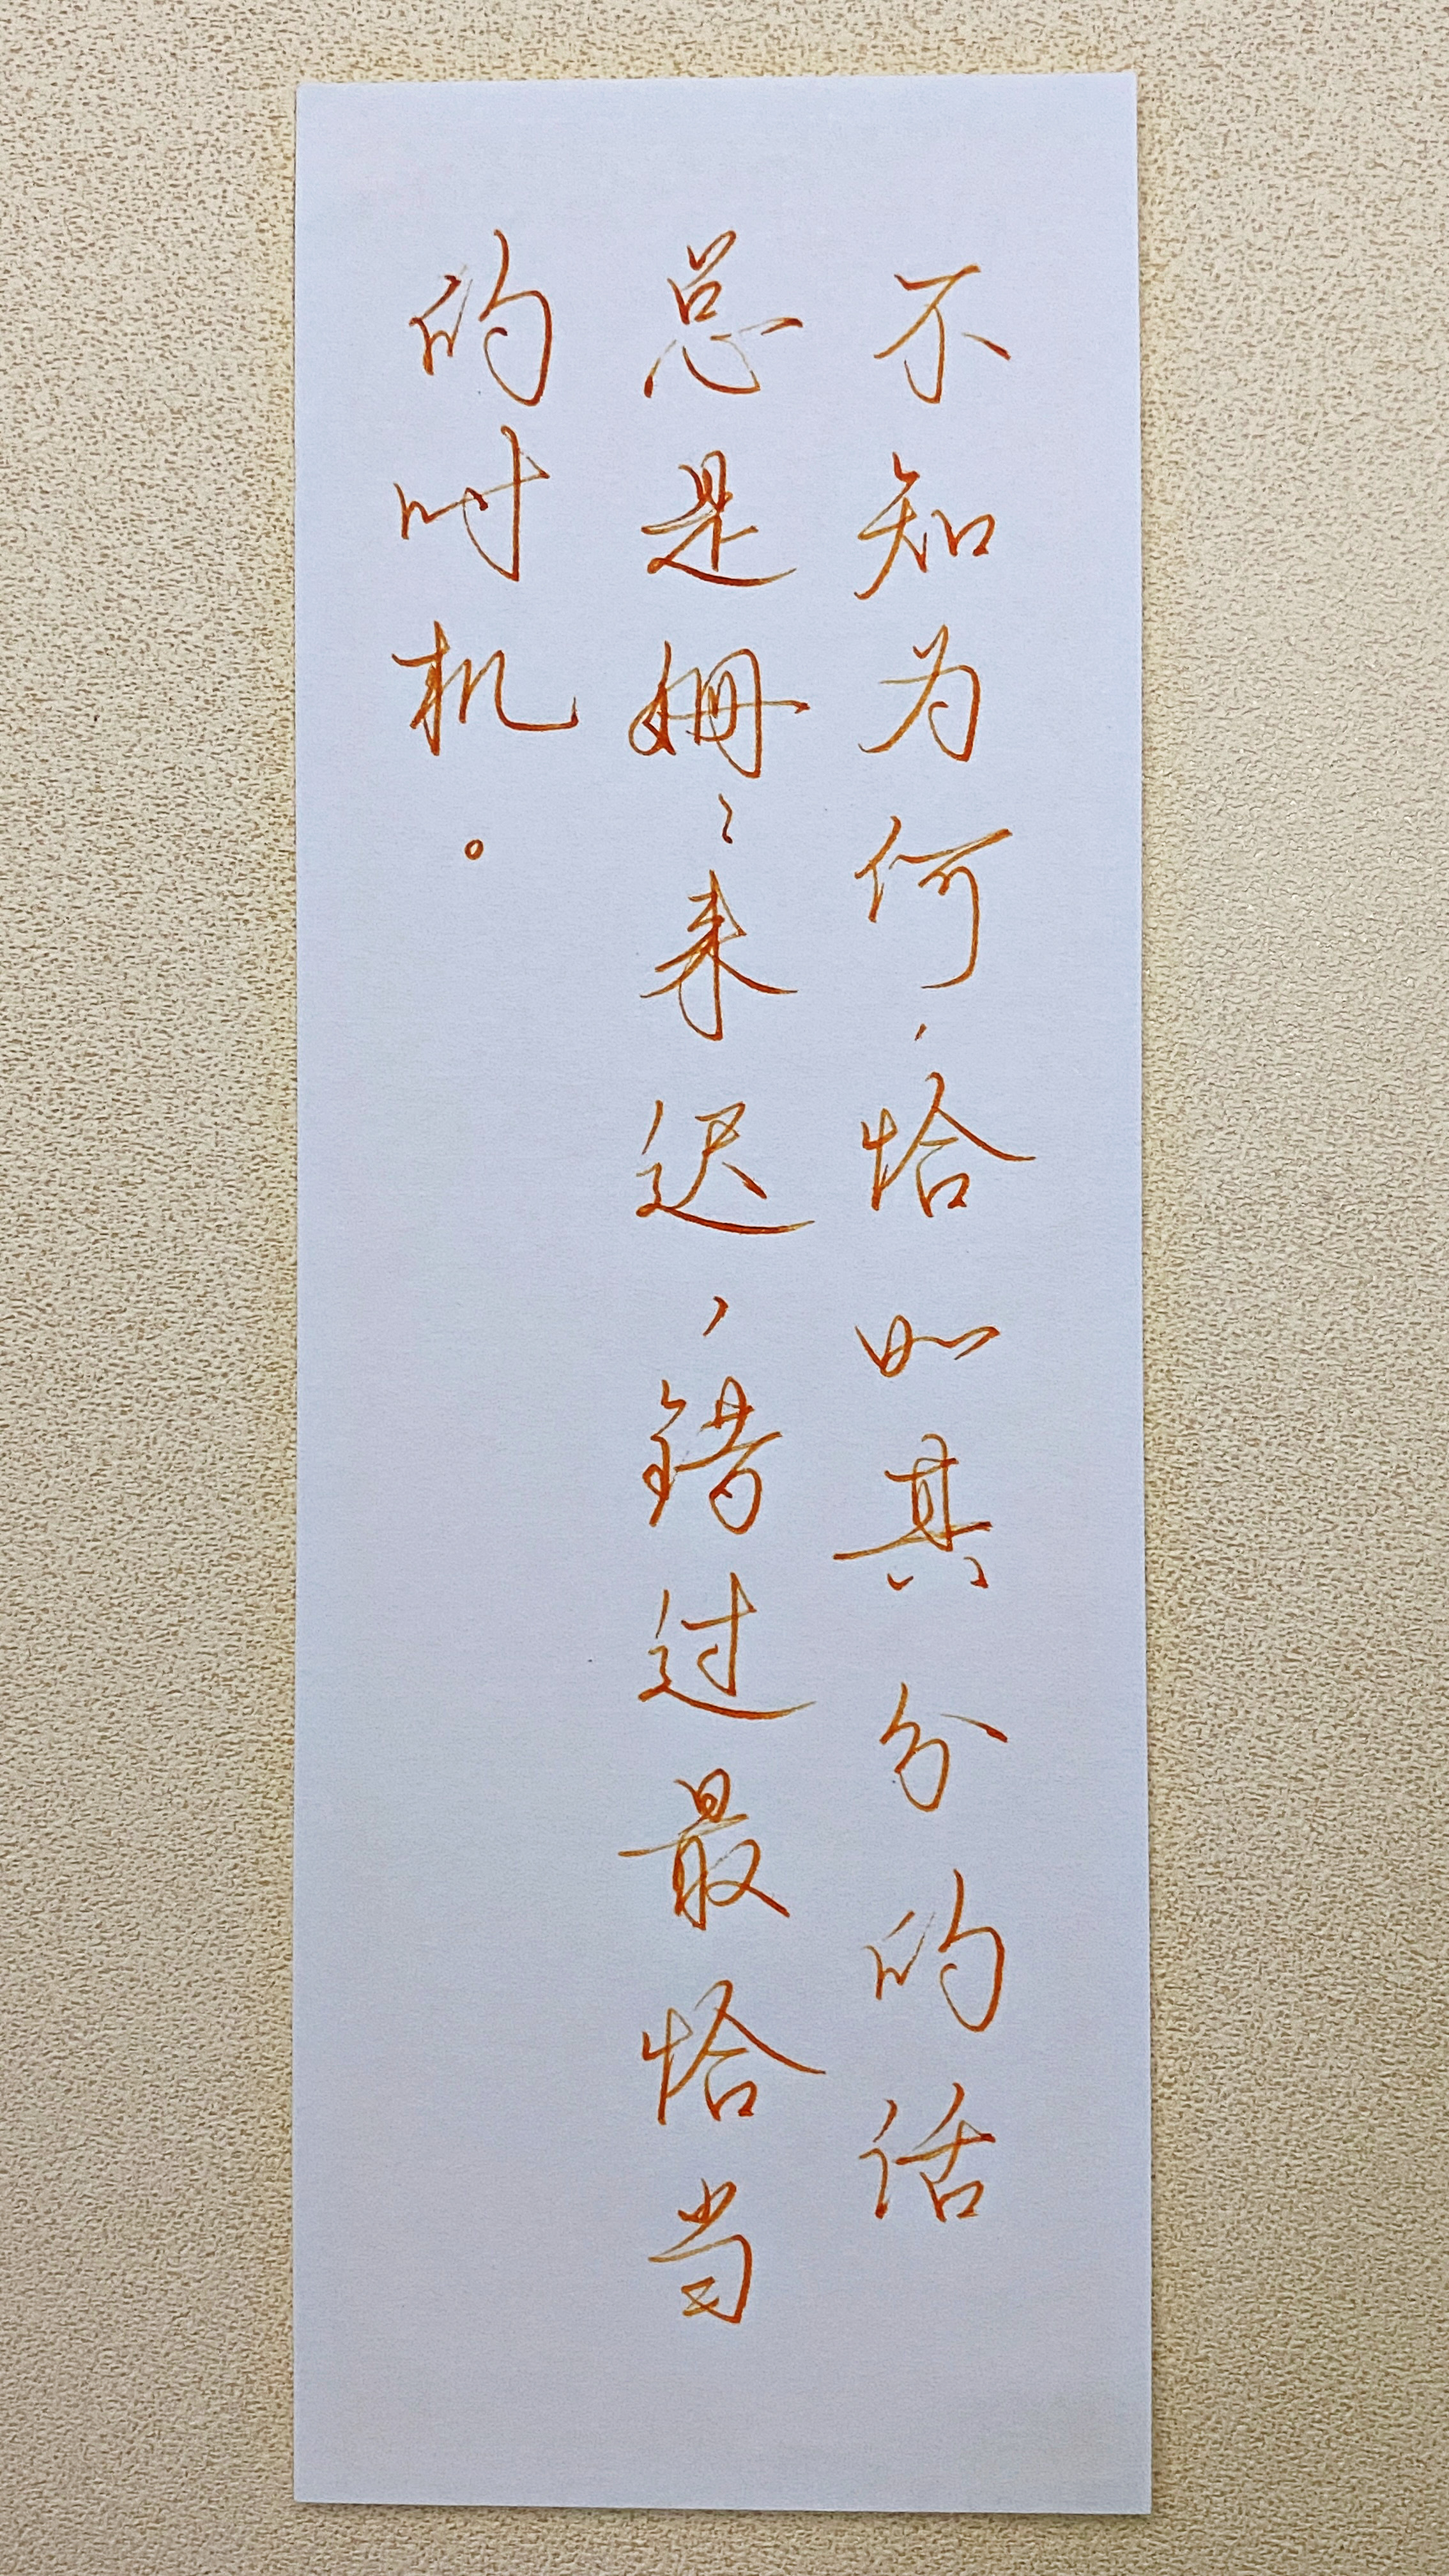 不知为何，恰如其分的话
总是姗〻来迟，错过最恰当
的时机。